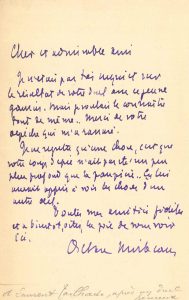 Cher et admirable ami
Je n'étais pas très inquiet sur
le résultat de votre duel avec ce pauvre
gamin. Mais je voulais le connaître
tout de même.. Merci de votre
dépêche qui m'a rassuré.
Je ne regrette qu'une chose, c'est que
votre coup d'épée n'ait pas été un peu
plus profond que la
aurait appris à voir les choses d'un
autre œil.
Toutes mes amitiés fidèles
et à bientôt, la joie de vous voir
ici.
Octave Mirbeau
à Laurent Tailhade, après un duel